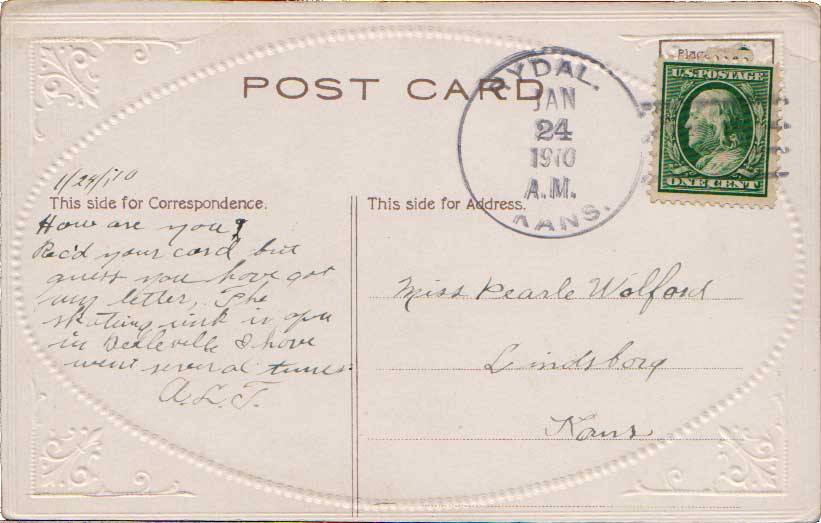 Place
POST CARD
RYDAL.
JAN
24
1910
A.M.
KANS.
U.S. POSTAGE
ONE CENT
1/24/10
This side for Correspondence.
How are you?
Rec'd your card but
guess you have got
my letter, The
skating rink is open
in Belleville I have
went several times.
A.L.T.
This side for Address.
Miss Pearle Wolford
Lindsborg
Kans